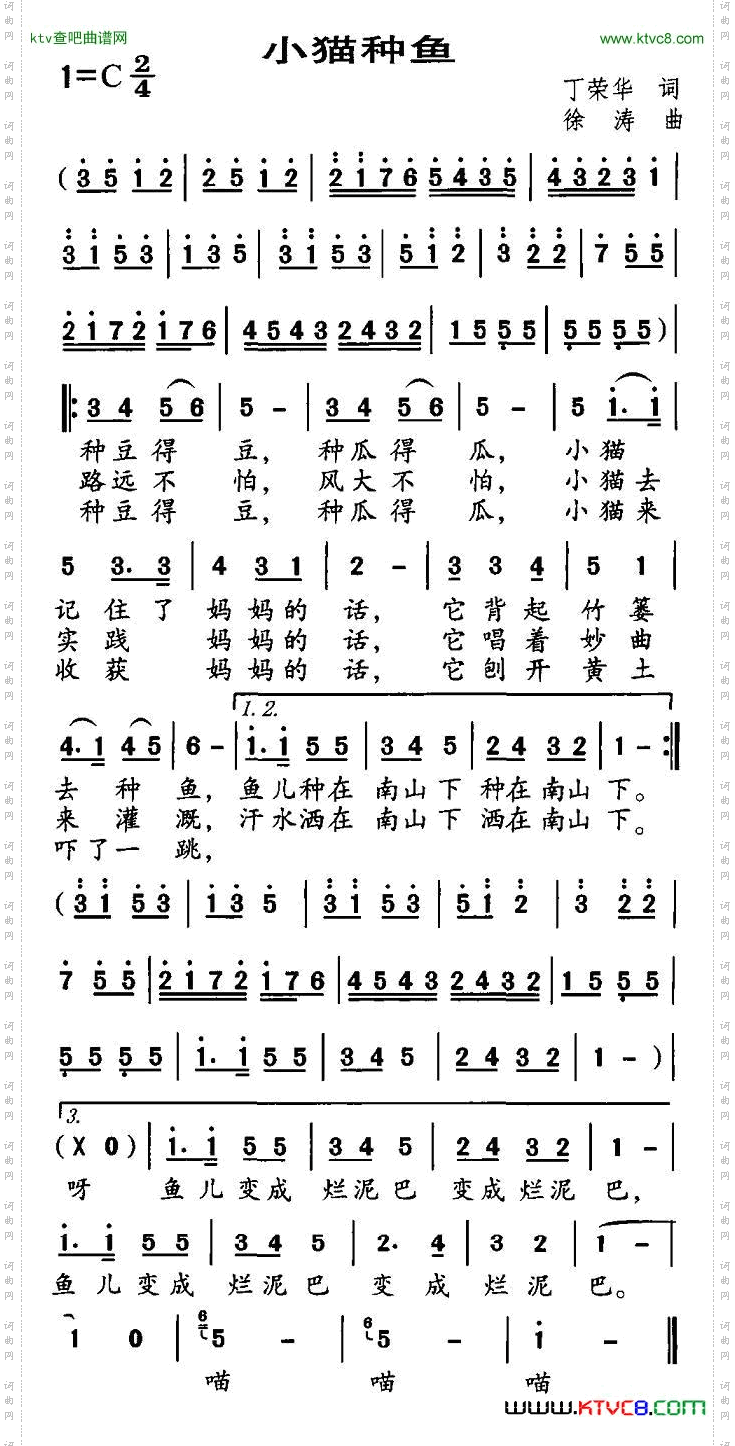 ktv查吧曲谱网
www.ktvc8.com
小猫种鱼
1=C 2/4
丁荣华 词
徐涛 曲
( 3 5 1 2 | 2 5 1 2 | 2 1 7 6 5 4 3 5 | 4 3 2 3 1 |
3 1 5 3 | 1 3 5 | 3 1 5 3 | 5 1 2 | 3 2 2 | 7 5 5 |
2 1 7 2 1 7 6 | 4 5 4 3 2 4 3 2 | 1 5 5 5 | 5 5 5 5 ) |
‖: 3 4 5 6 | 5 - | 3 4 5 6 | 5 - | 5 1. 1 |
种豆得 豆, 种瓜得 瓜, 小猫
路远不 怕, 风大不 怕, 小猫去
种豆得 豆, 种瓜得 瓜, 小猫来
5 3. 3 | 4 3 1 | 2 - | 3 3 4 | 5 1 |
记住了 妈妈的 话, 它背起 竹篓
实践 妈妈的 话, 它唱着 妙曲
收获 妈妈的 话, 它刨开 黄土
1. 2.
4. 1 4 5 | 6 - | 1. 1 5 5 | 3 4 5 | 2 4 3 2 | 1 - :‖
去 种 鱼, 鱼儿种在 南山下 种在南山 下。
来 灌 溉, 汗水洒在 南山下 洒在南山 下。
吓了一 跳,
( 3 1 5 3 | 1 3 5 | 3 1 5 3 | 5 1 2 | 3 2 2 |
7 5 5 | 2 1 7 2 1 7 6 | 4 5 4 3 2 4 3 2 | 1 5 5 5 |
5 5 5 5 | 1. 1 5 5 | 3 4 5 | 2 4 3 2 | 1 - ) |
3.
( X 0 ) | 1. 1 5 5 | 3 4 5 | 2 4 3 2 | 1 - |
呀 鱼儿变成 烂泥巴 变成烂泥 巴,
1. 1 5 5 | 3 4 5 | 2. 4 | 3 2 | 1 - |
鱼儿变成 烂泥巴 变成 烂泥 巴。
1 0 | 6 5 - | 6 5 - | 1 - ‖
喵 喵 喵
www.KTVC8.com
词曲网